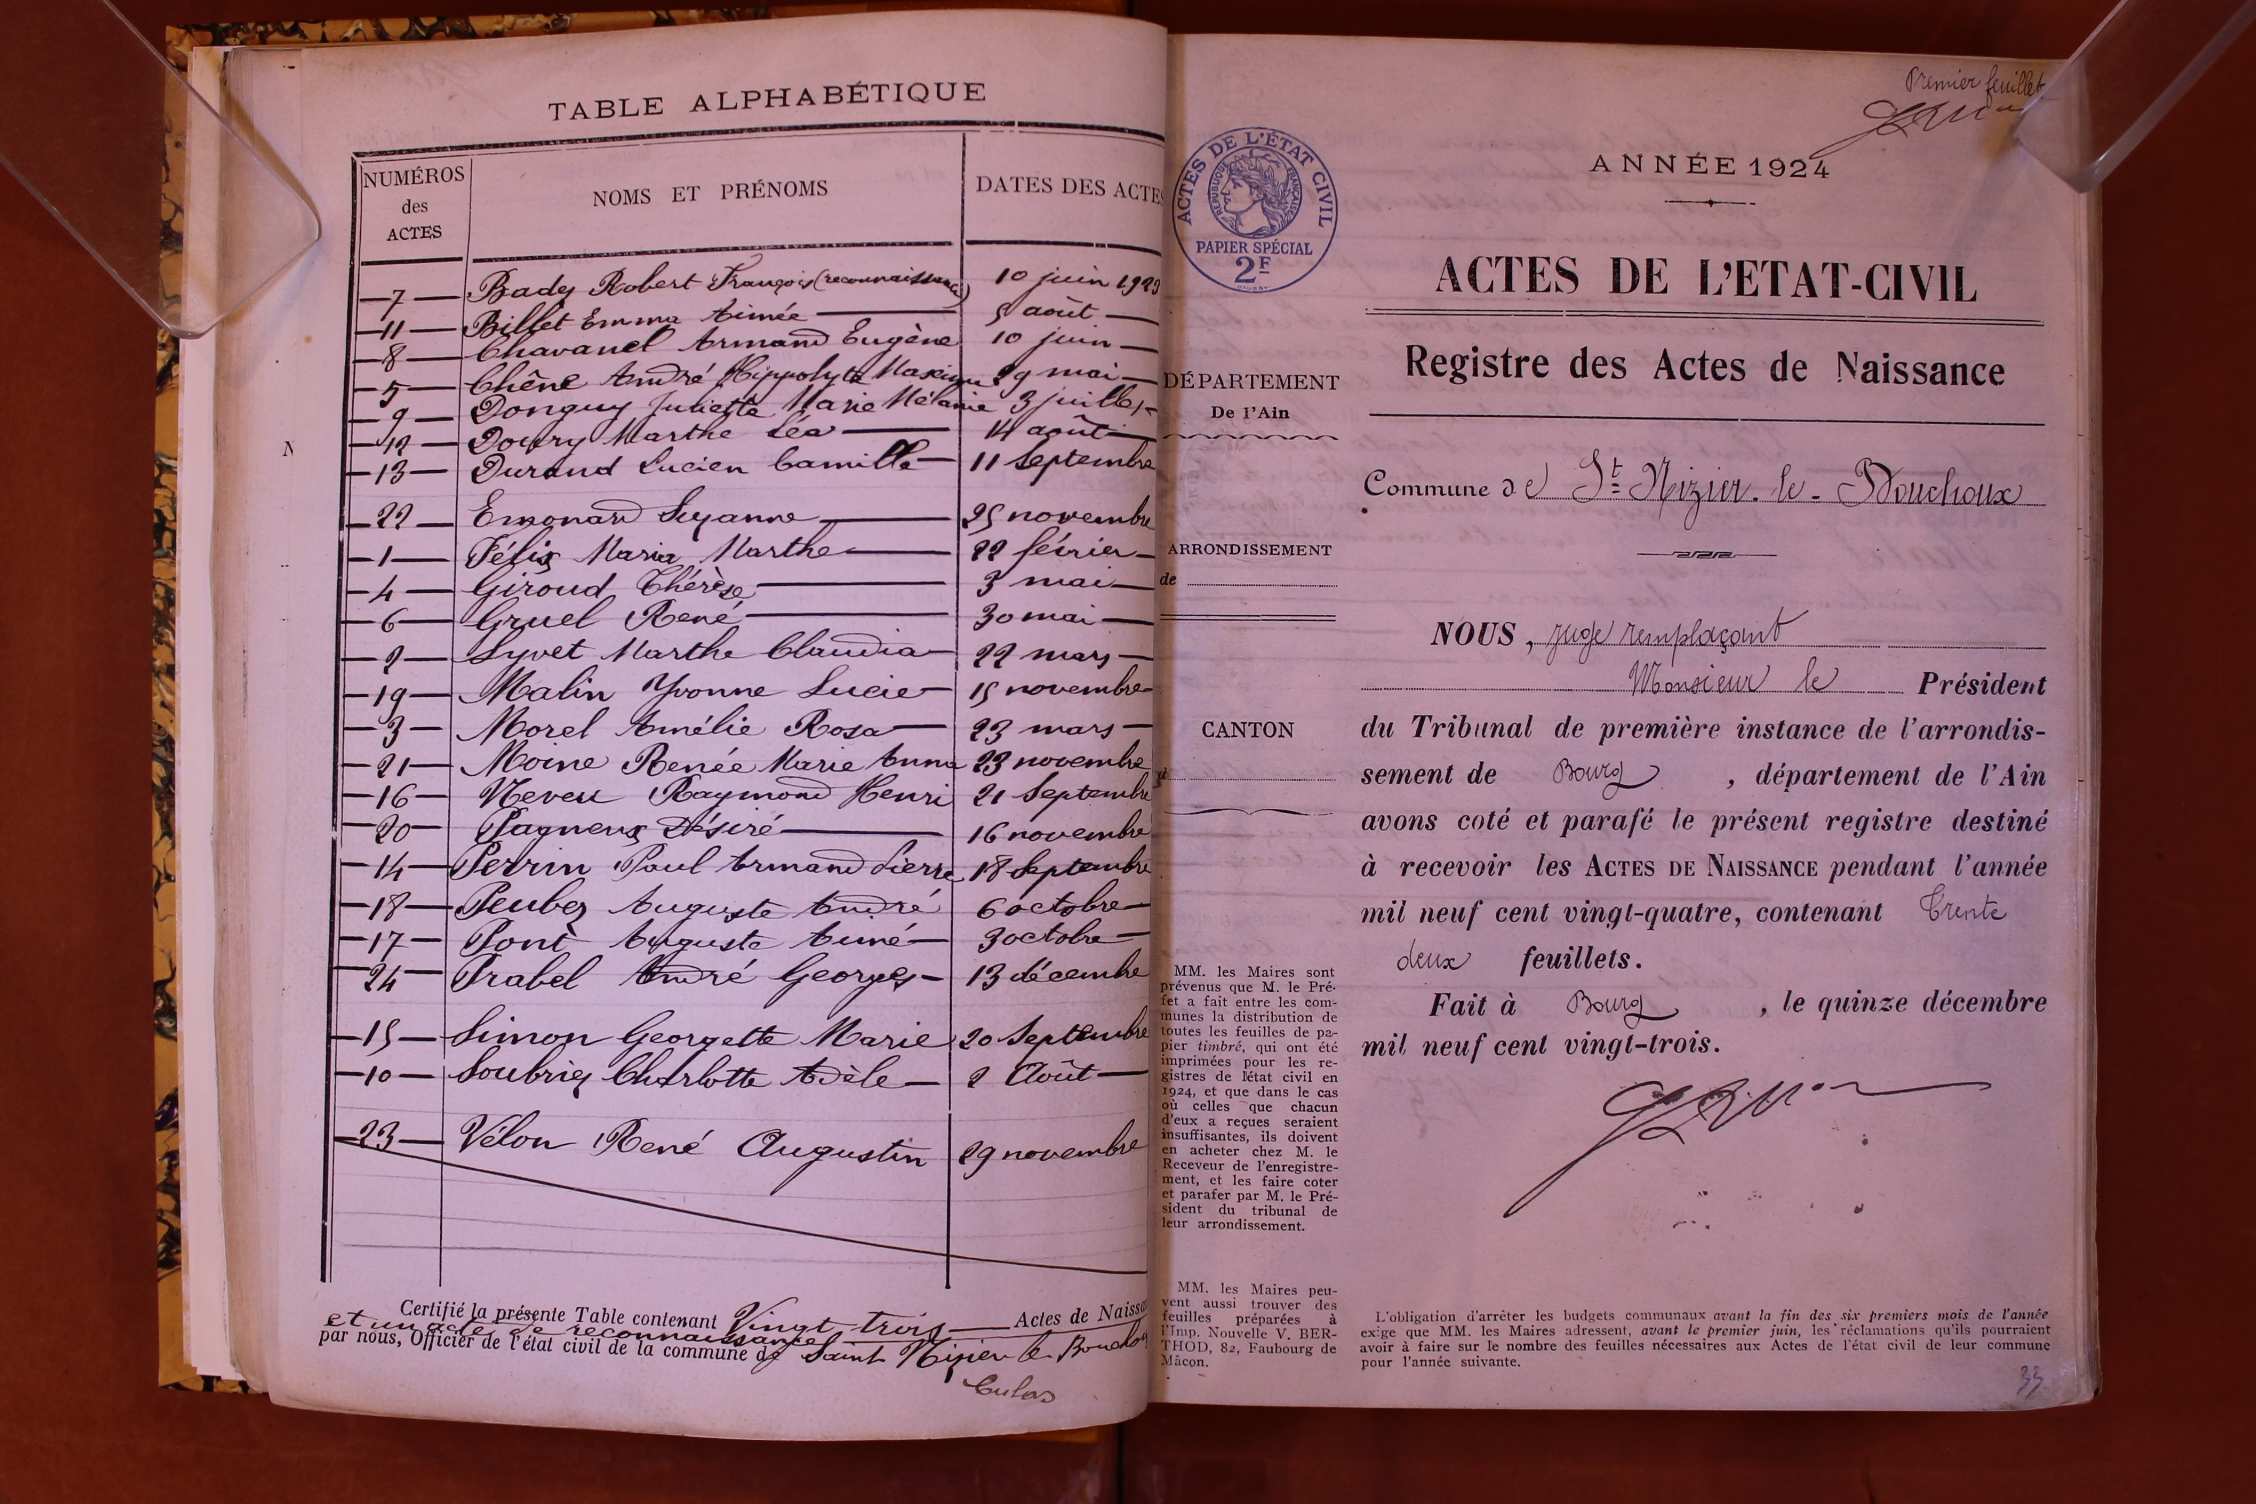 TABLE ALPHABÉTIQUE
NUMÉROS des ACTES
NOMS ET PRÉNOMS
DATES DES ACTES
7 Bady Robert François (reconnaissance) 10 juin 1923
11 Billet Emma Aimée 5 août
8 Chavanel Armand Eugène 10 juin
5 Chêne André Hippolyte Maxime 29 mai
9 Donguy Juliette Marie Mélanie 3 juillet
12 Doury Marthe Léa 14 août
13 Durand Lucien Camille 11 Septembre
22 Emonard Suzanne 25 novembre
1 Félix Maria Marthe 22 février
4 Giroud Thérèse 3 mai
6 Gruel René 30 mai
2 Lyvet Marthe Claudia 22 mars
19 Malin Yvonne Lucie 15 novembre
3 Morel Amélie Rosa 23 mars
21 Moine Renée Marie Anna 23 novembre
16 Neveu Raymond Henri 21 Septembre
20 Pagneux Désiré 16 novembre
14 Perrin Paul Armand Pierre 18 Septembre
18 Peubez Auguste André 6 octobre
17 Pont Auguste Aimé 3 octobre
24 Prabel André Georges 13 décembre
15 Simon Georgette Marie 20 Septembre
10 Soubriez Charlotte Adèle 2 Août
23 Vélon René Augustin 29 novembre
Certifié la présente Table contenant Vingt trois Actes de Naissan
et un acte de reconnaissance
par nous, Officier de l'état civil de la commune de Saint Nizier le Bouchou
Premier feuillet
ACTES DE L'ÉTAT CIVIL
RÉPUBLIQUE FRANÇAISE
PAPIER SPÉCIAL
2F
ANNÉE 1924
ACTES DE L'ETAT-CIVIL
Registre des Actes de Naissance
DÉPARTEMENT
De l'Ain
Commune de St Nizier-le-Bouchoux
ARRONDISSEMENT
de
CANTON
NOUS, juge remplaçant
Monsieur le Président
du Tribunal de première instance de l'arrondis-
sement de Bourg, département de l'Ain
avons coté et parafé le présent registre destiné
à recevoir les ACTES DE NAISSANCE pendant l'année
mil neuf cent vingt-quatre, contenant Trente
deux feuillets.
Fait à Bourg, le quinze décembre
mil neuf cent vingt-trois.
MM. les Maires sont
prévenus que M. le Pré-
fet a fait entre les com-
munes la distribution de
toutes les feuilles de pa-
pier timbré, qui ont été
imprimées pour les re-
gistres de l'état civil en
1924, et que dans le cas
où celles que chacun
d'eux a reçues seraient
insuffisantes, ils doivent
en acheter chez M. le
Receveur de l'enregistre-
ment, et les faire coter
et parafer par M. le Pré-
sident du tribunal de
leur arrondissement.
MM. les Maires peu-
vent aussi trouver des
feuilles préparées à
l'Imp. Nouvelle V. BER-
THOD, 82, Faubourg de
Mâcon.
L'obligation d'arrêter les budgets communaux avant la fin des six premiers mois de l'année
exige que MM. les Maires adressent, avant le premier juin, les réclamations qu'ils pourraient
avoir à faire sur le nombre des feuilles nécessaires aux Actes de l'état civil de leur commune
pour l'année suivante.
33